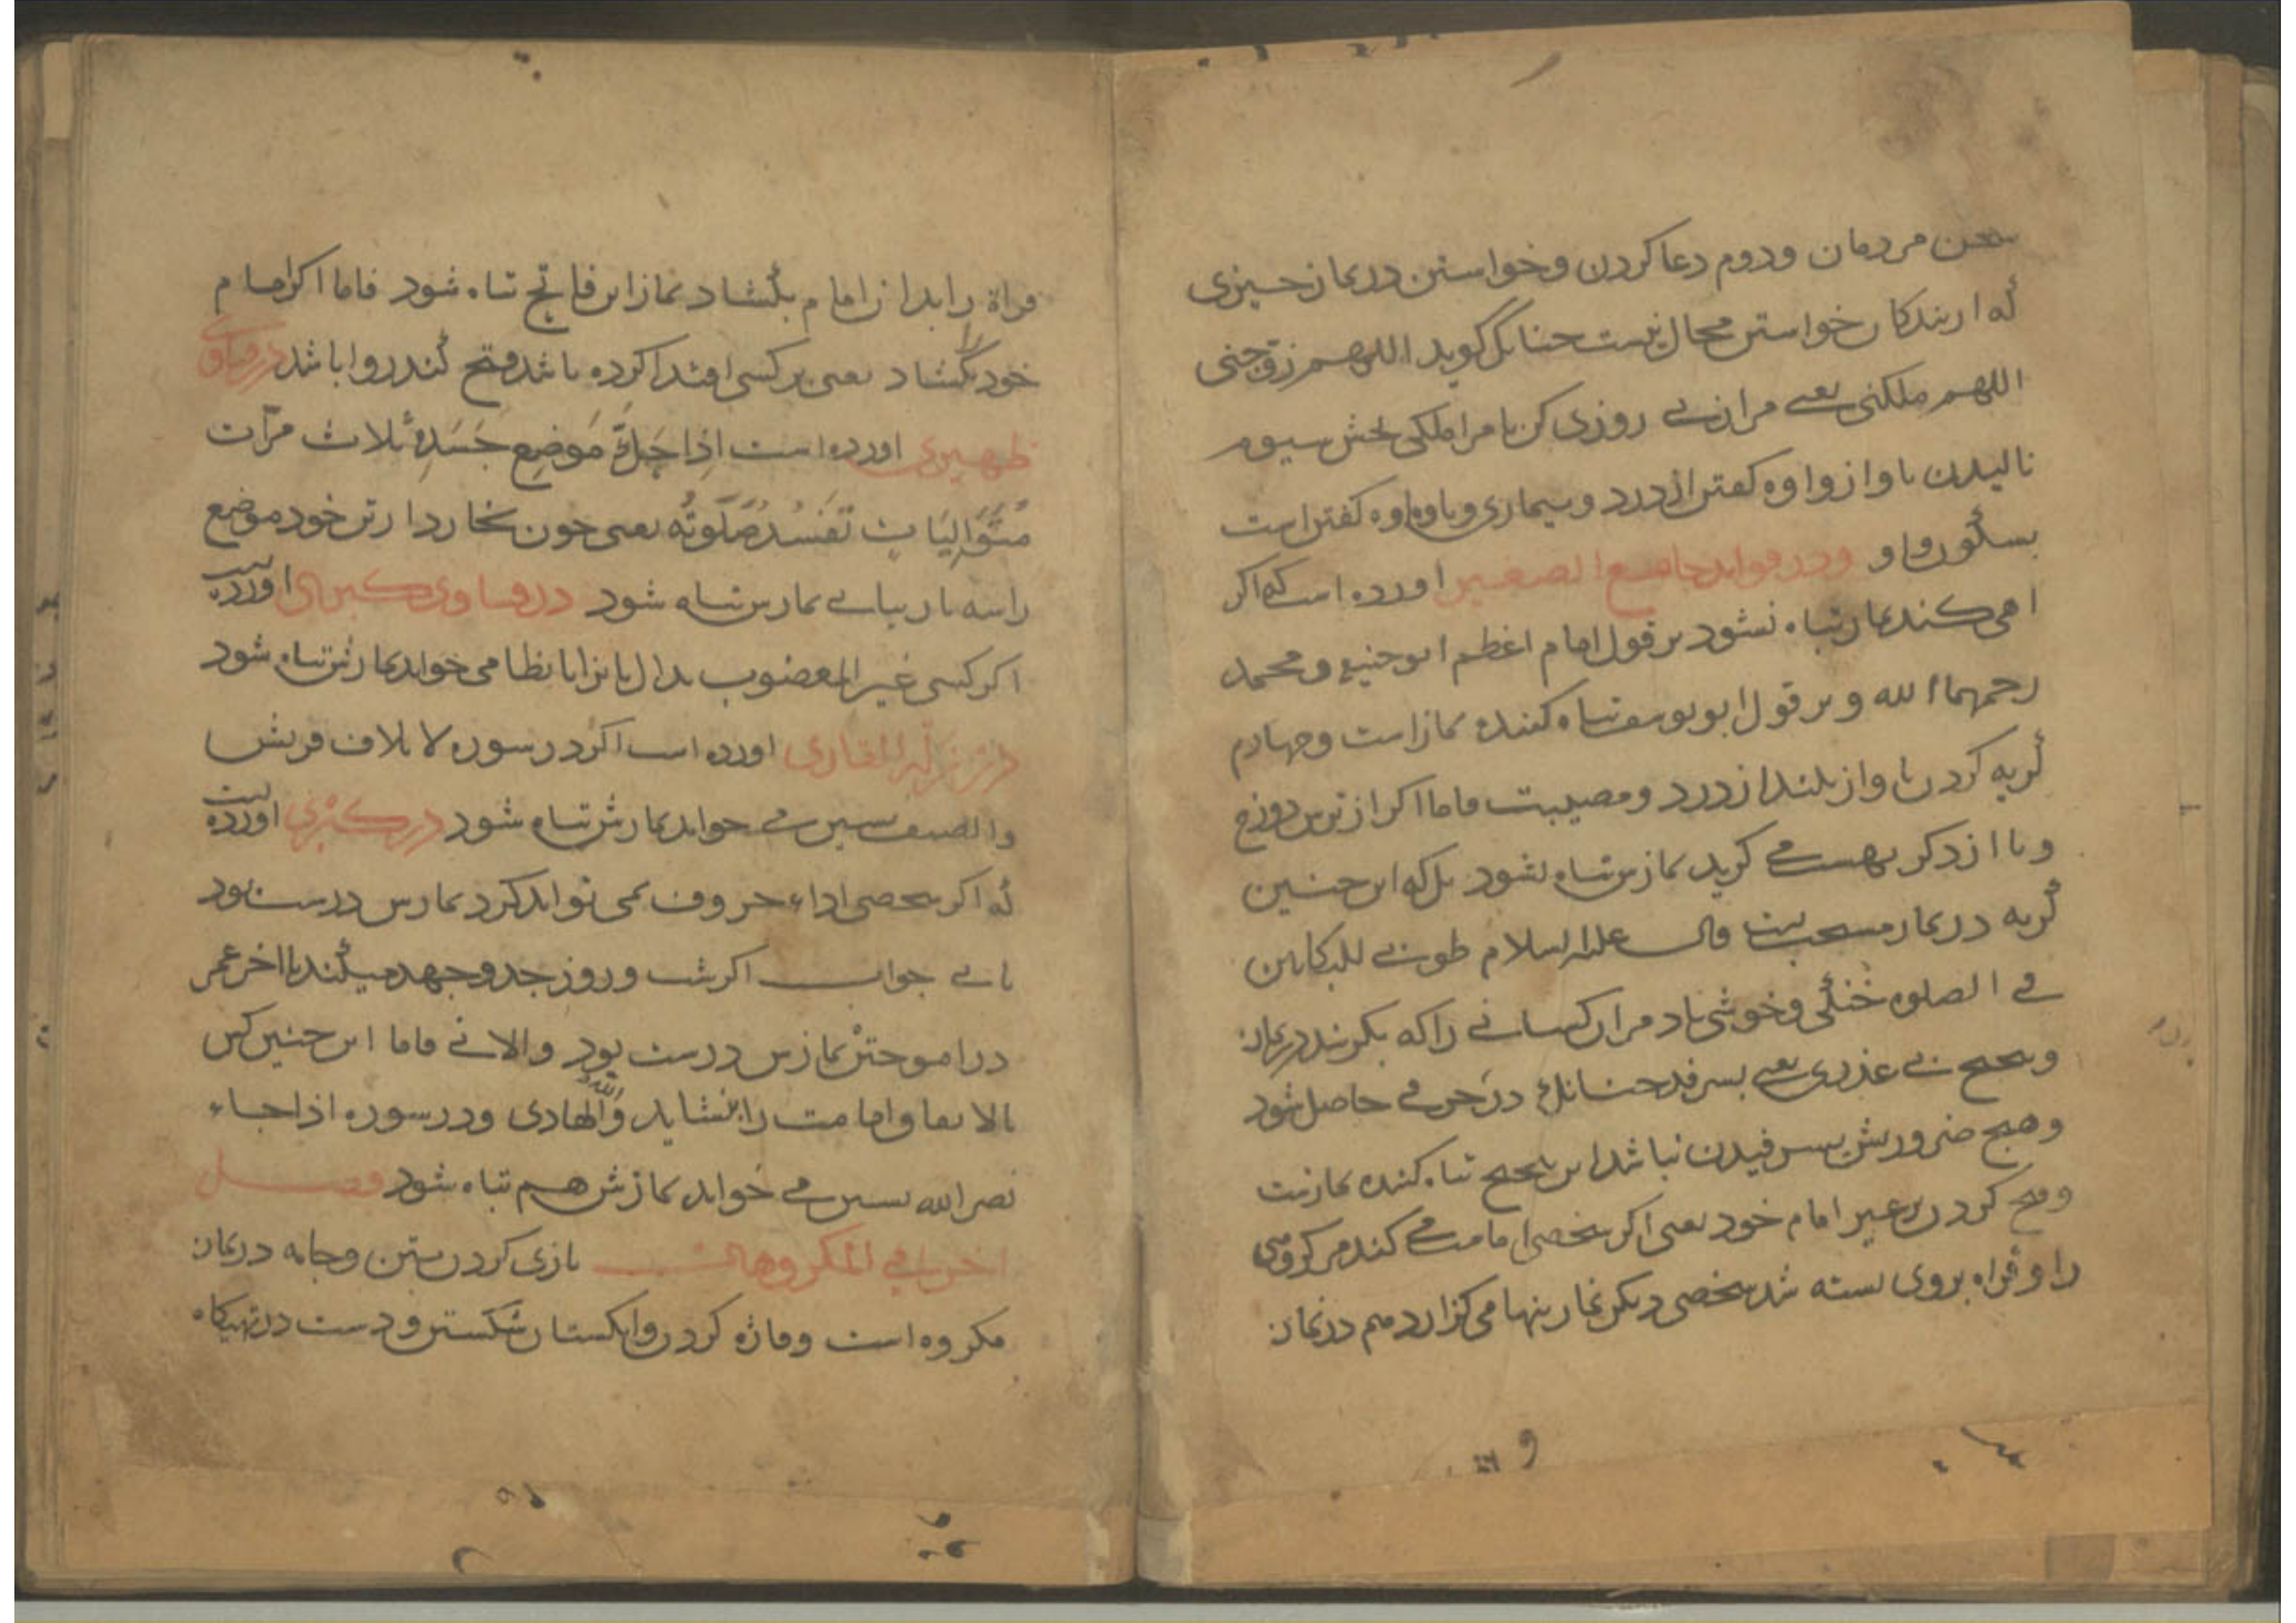 سخن مردمان ودوم دعا کردن وخواستن در نماز چیزی
که از بندکان خواستن محال نیست چنانک کوید اللهم زوجنی
اللهم ملکنی یعنی مرا زنی روزی کن یا مرا ملکی بخش سیوم
نالیدن باواز واوه کفتن از درد وبیماری وباوه اوه کفتن است
بسکون واو ودر فواید جامع الصغیر اورده است که اکر
اهی کند نمازش تباه نشود بر قول امام اعظم ابو حنیفه ومحمد
رحمهما الله وبر قول ابو یوسف تباه کننده نماز است وچهارم
کریه کردن باواز بلند از درد ومصیبت فاما اکر از ترس دوزخ
ویا از ذکر بهشت می کرید نمازش تباه نشود بل که این چنین
کریه در نماز مستحب است قال علیه السلام طوبی للبکایین
فی الصلوه خنکی وخوشی باد مر ان کسانی را که بکریند در نماز
وتنحنح بی عذری یعنی بسرفد چنانک در حرفی حاصل شود
وهیچ ضرورتش بسرفیدن نباشد این تنحنح تباه کننده نماز است
وفتح کردن بر غیر امام خود یعنی اکر شخصی امامت می کند مر کروهی
را وقراه بروی بسته شد شخصی دیکر نماز تنها می کزارد هم در نماز
قراة را بدان امام بکشاد نماز این فاتح تباه شود فاما اکر امام
خود را بکشاد یعنی بر کسی اقتدا کرده باشد فتح کند روا باشد در فتاوی
ظهیری اورده است اذا حک موضع جسده ثلاث مرات
متوالیات تفسد صلوته یعنی چون بخارد از تن خود موضع
را سه بار بیاپی نمازش تباه شود در فتاوی کبری اورده است
اکر کسی غیر المغضوب بدال یا بزا یا بظا می خواند نمازش تباه شود
در زلة القاری اورده است اکر در سوره لایلاف قریش
والصیف بسین می خواند نمازش تباه شود در کبری اورده است
که اکر شخصی اداء حروف نمی تواند کرد نمازش درست بود
یا نی جواب اکر شب وروز جد وجهد میکند تا اخر عمر
در اموختن نمازش درست بود والا نی فاما این چنین کس
بالاتفاق امامت را نشاید والله الهادی ودر سوره اذا جاء
نصر الله بسین می خواند نمازش هم تباه شود فصل
اخر فی المکروهات بازی کردن بتن وجامه در نماز
مکروه است وفاژه کردن وانکستان شکستن ودست در تهیکاه